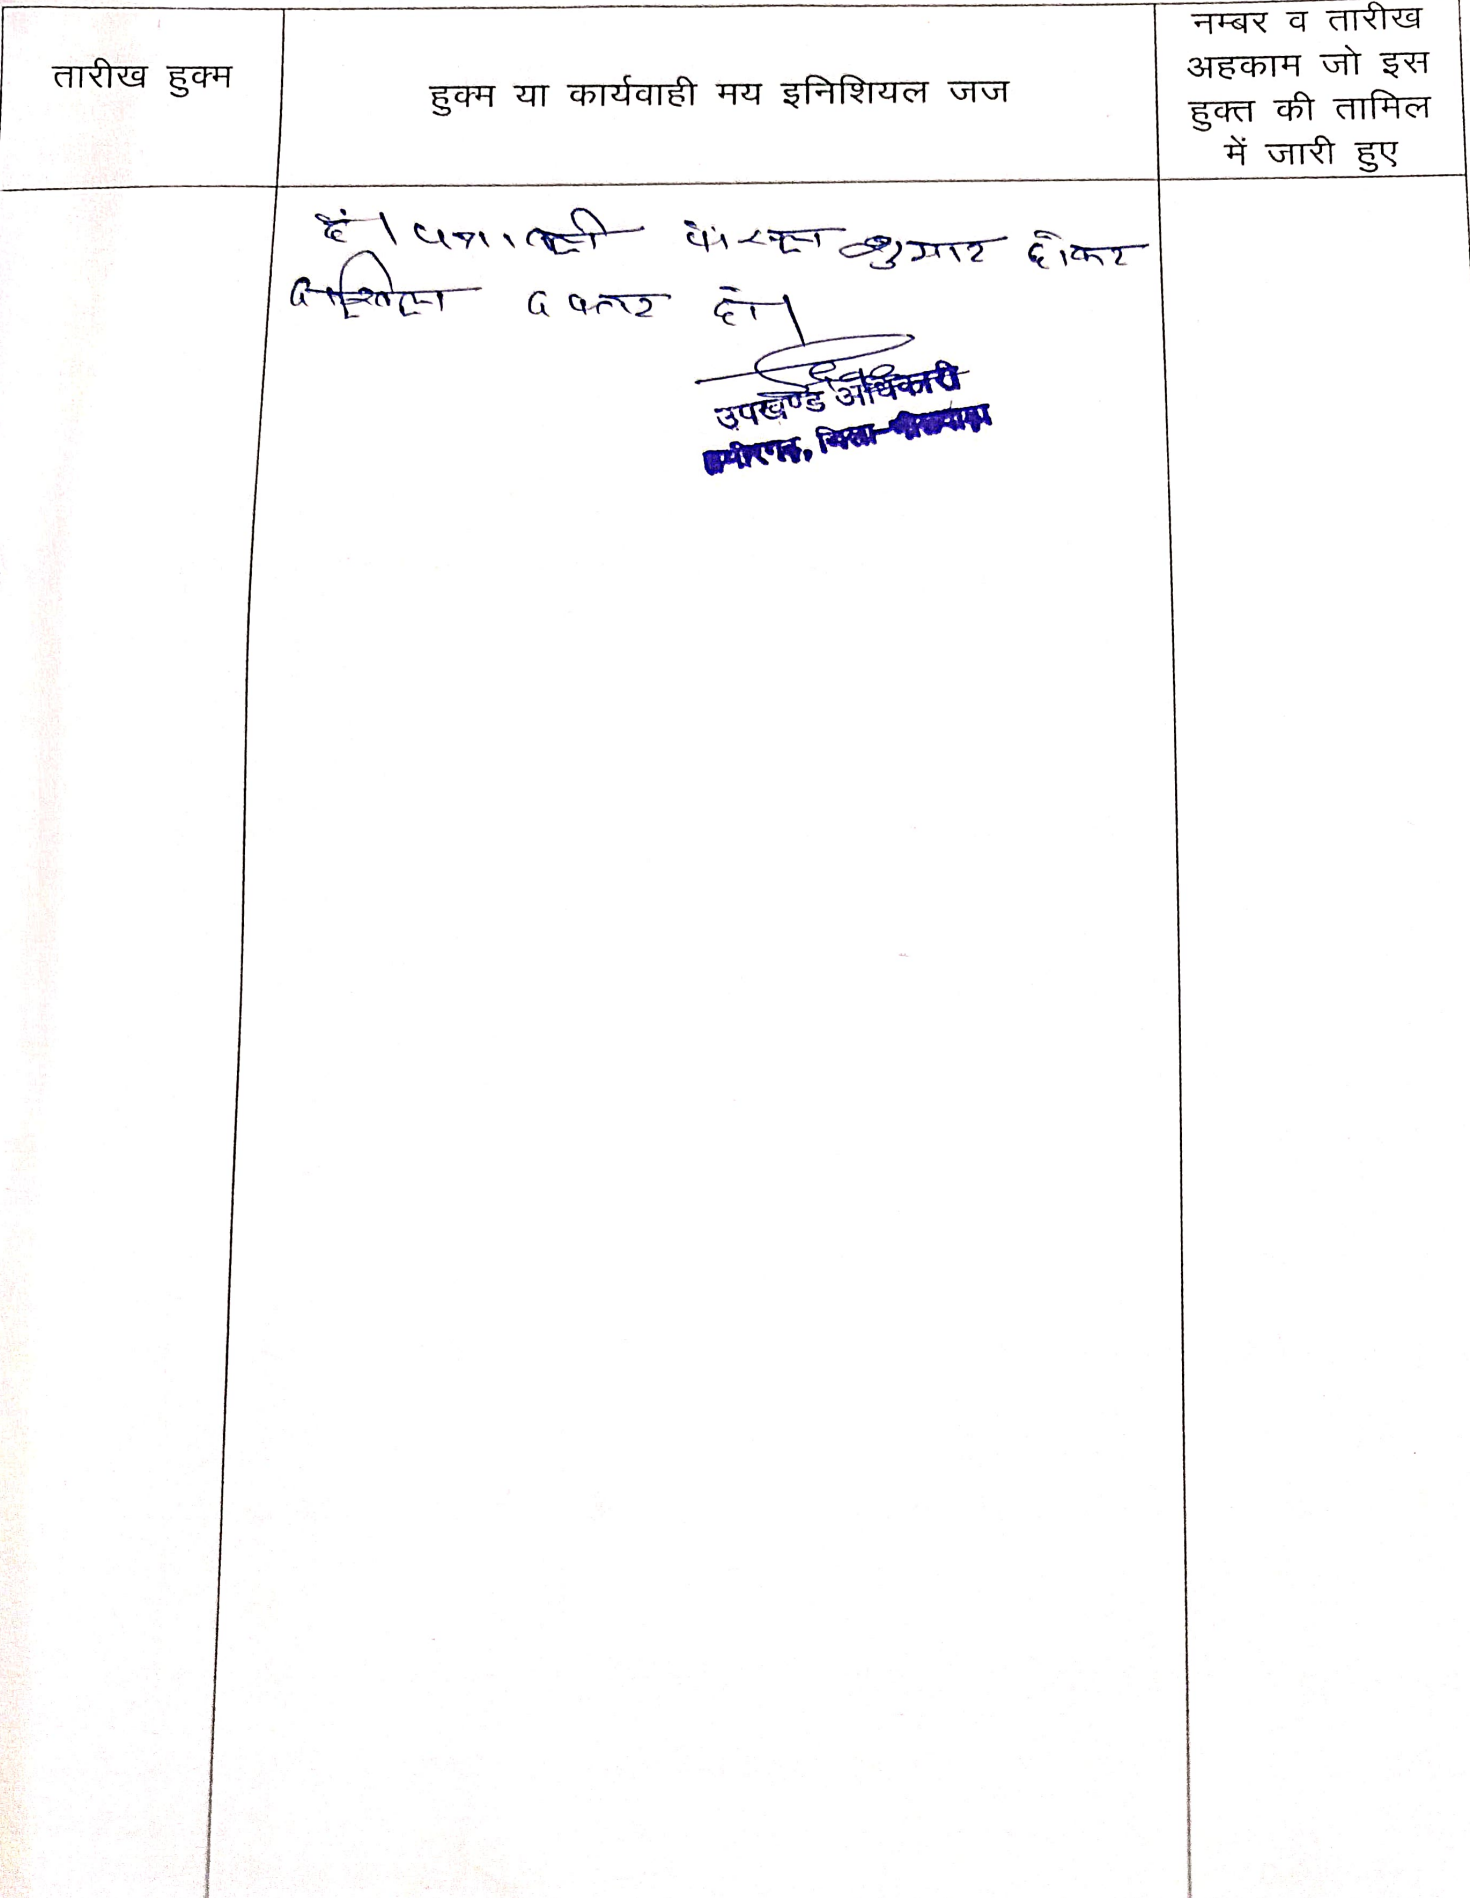 तारीख हुक्म
हुक्म या कार्यवाही मय इनिशियल जज
नम्बर व तारीख
अहकाम जो इस
हुक्त की तामिल
में जारी हुए
है। पत्रावली फैसल शुमार होकर
दाखिल दफ्तर हो।
उपखण्ड अधिकारी
जिला